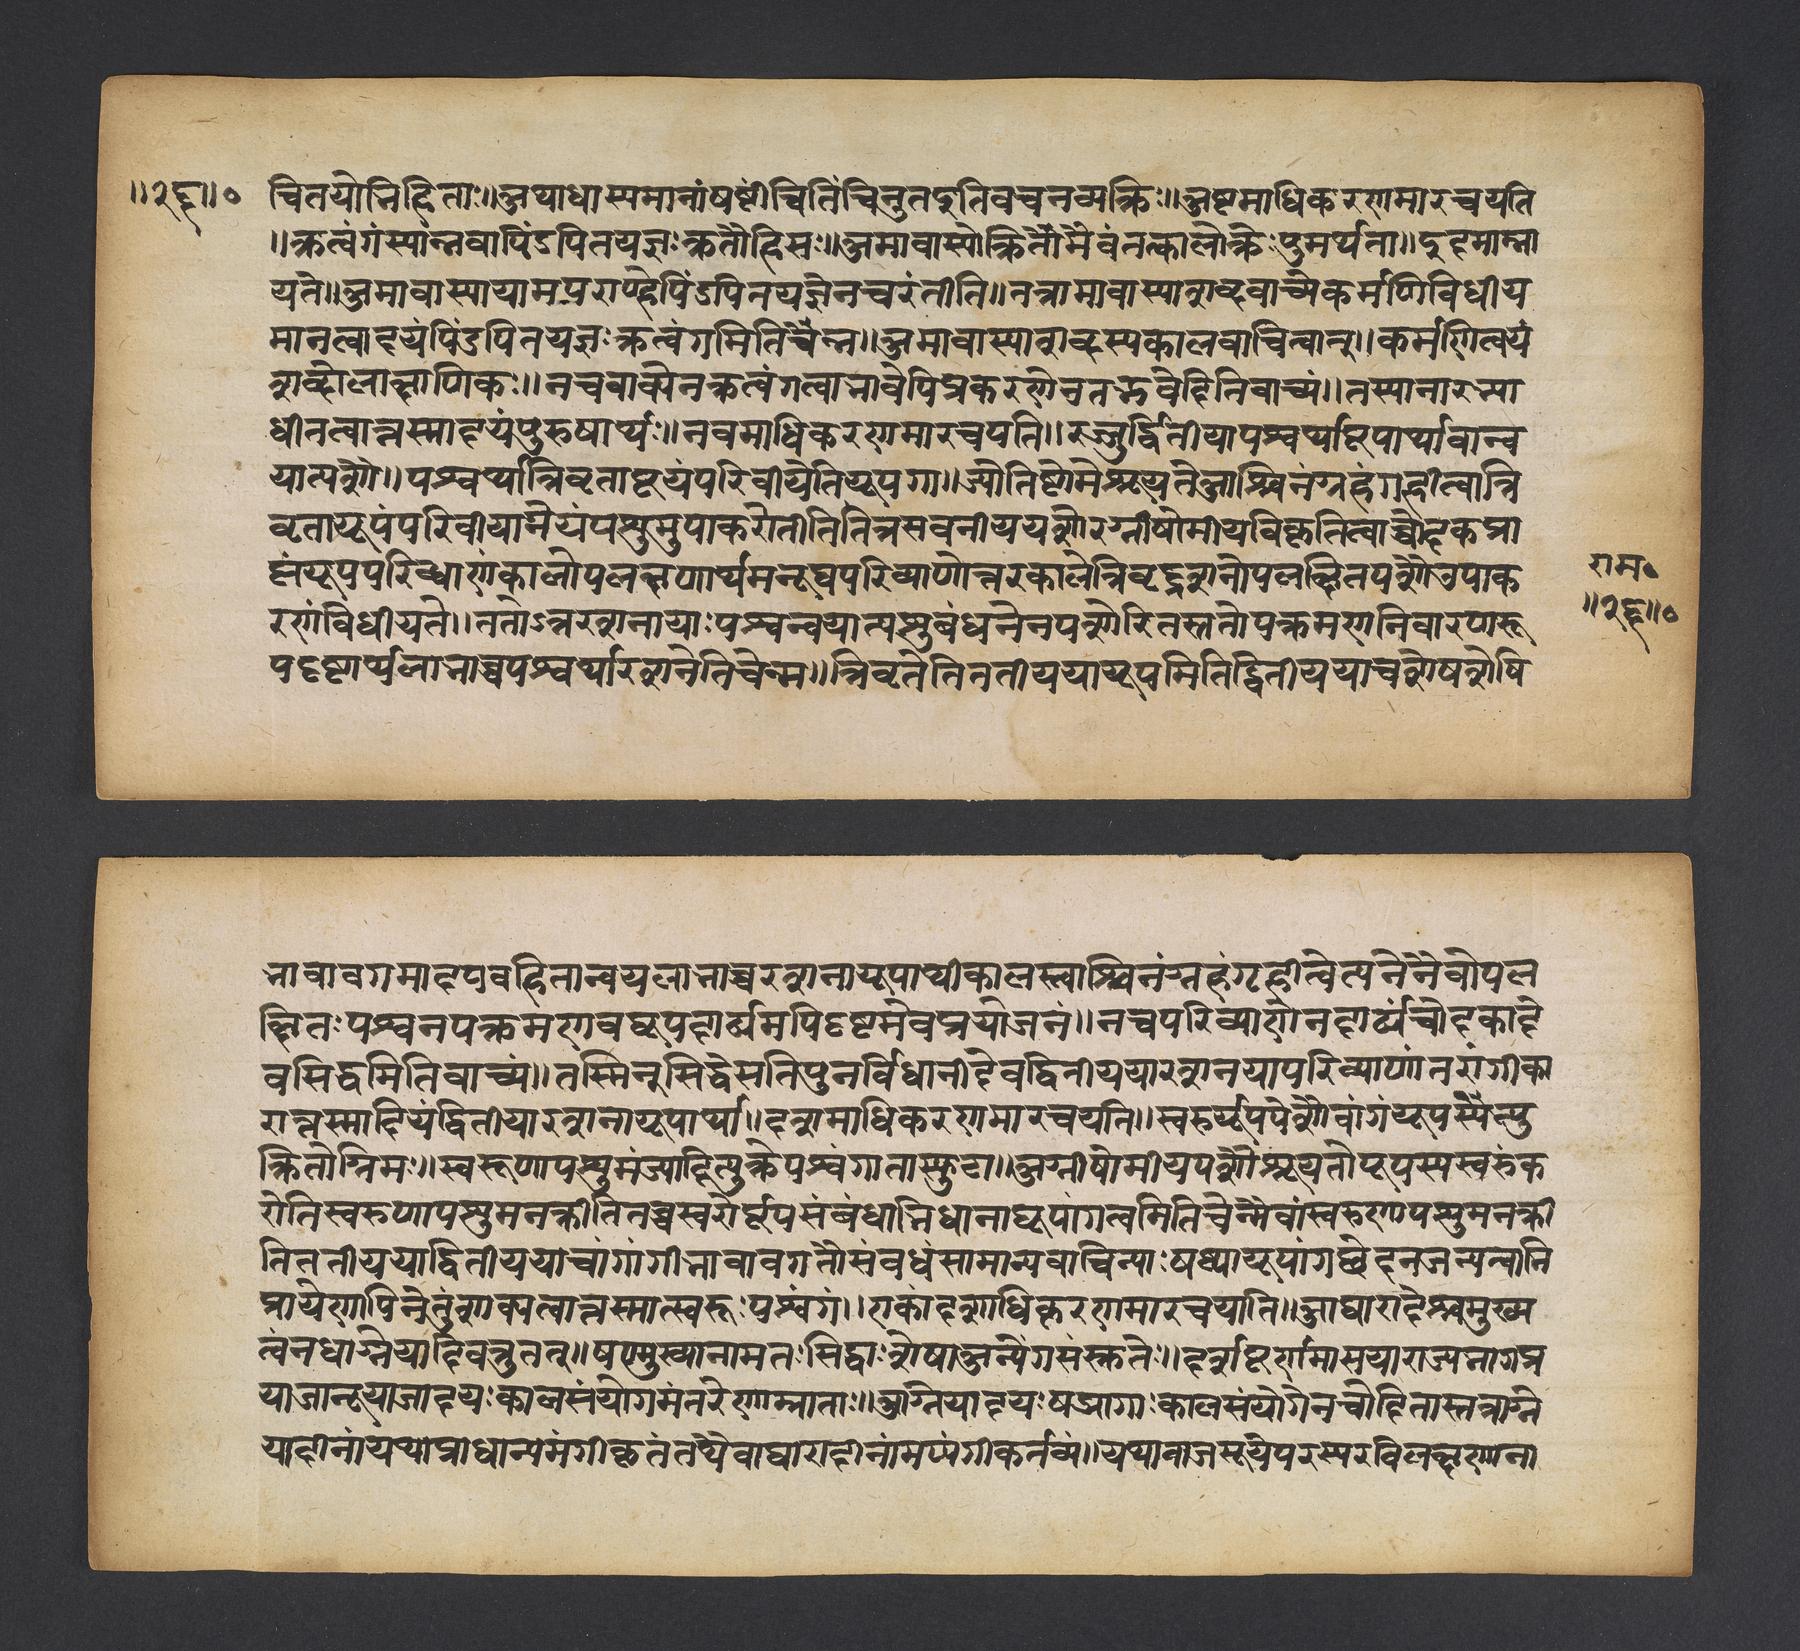 ॥२६॥०
चितयोनिहिताः॥अथाधास्यमानांषष्टींचितिंचिनुतइतिवचनव्यक्तिः॥अष्टमाधिकरणमारचयति
॥क्रत्वंगंस्यान्नवापिंडपितयज्ञःक्रतौहिसः॥अमावास्योक्तितोमैवंतत्कालोक्तेःपुमर्थता॥इदमाम्ना
यते॥अमावास्यायामपराण्हेपिंडपितयज्ञेनचरंतीति॥तत्रामावास्याशब्दवाच्येकर्मणिविधीय
मानत्वादयंपिंडपितयज्ञःक्रत्वंगमितिचेन्न॥अमावास्याशब्दस्यकालवाचित्वात्॥कर्मणित्वयं
शब्दोलाक्षणिकः॥नचवाक्येनक्रत्वंगत्वाभावेपिप्रकरणेनतद्भवेदितिवाच्यं॥तस्यानारभ्या
धीतत्वात्तस्मादयंपुरुषार्थः॥नवमाधिकरणमारचयति॥रज्जुर्द्वितीयापश्वर्थाष्टपार्थावान्व
यात्पशौ॥पश्वर्थात्रिवृताष्टयंपरिवीयेतियूपगा॥ज्योतिष्टोमेश्रूयतेआश्विनंग्रहंगृहीत्वात्रि
वृतायूपंपरिवीयाग्नेयंपशुमुपाकरोतीतितत्रसवनीययशोरग्नीषोमीयविकृतित्वाच्चोदकप्रा
प्तंयूपपरिव्याणंकालोपलक्षणार्थमनूद्यपरिव्याणोत्तरकालेत्रिवृद्रशनोपलक्षितपशौउपाक
रणंविधीयते॥ततोऽत्ररशनायाःपश्वन्वयात्पशुबंधनेनपशोरितस्ततोपक्रमणनिवारणरू
पदृष्टार्थलाभाच्चपश्वर्थारशनेतिचेन्न॥त्रिवृतेतितृतीययायूपमितिद्वितीययाचशेषशेषि
राम०
॥२६॥०
भावावगमादव्यवहितान्वयलाभाच्चरशनायूपार्थाकालस्त्वाश्विनंग्रहंगृहीत्वेत्यनेनैवोपल
क्षितःपश्वनपक्रमणवद्यूपदार्ढ्यमपिदृष्टमेवप्रयोजनं॥नचपरिव्याणेनदार्ढ्यंचोदकादे
वसिद्धमितिवाच्यं॥तस्मिन्सिद्धेसतिपुनर्विधानादेवद्वितीययारशनयापरिव्याणांतरांगीका
रात्तस्मादियंद्वितीयारशनायूपार्था॥दशमाधिकरणमारचयति॥स्वरुर्यूपपशोर्वांगंयूपस्येत्यु
क्तितोग्निमः॥स्वरूणापशुमंज्यादित्युक्तेपश्वंगतास्फुटा॥अग्नीषोमीयपशौश्रूयतेयूपस्यस्वरुंक
रोतिस्वरुणापशुमनक्तीतितत्रस्वरोर्यूपसंबंधाभिधानाद्यूपांगत्वमितिचेन्मैवांस्वरुणापशुमनक्ती
तिततीययाद्वितीययाचांगांगीभावावगतौसंबधंसामान्यवाचिन्याःषष्ठ्यायूपांगछेदनजन्यत्वाभि
प्रायेणापिनेतुंशक्यत्वात्तस्मात्स्वरूःपश्वंगं॥एकादशाधिकरणमारचयति॥आघारादेश्चमुख्य
त्वंनधाग्नेयादिवत्तुतत्॥षण्मुख्यानामतःसिद्धाःशेषाअन्येगसंस्कृतेः॥दर्शष्टर्णमासयाराज्यभागप्र
याजानूयाजादयःकालसंयोगमंतरेणाम्नाताः॥आग्नेयादयःषड्यागाःकालसंयोगेनचोदितास्तत्राग्ने
यादीनांयथाप्राधान्यमंगीकृतंतथैवाघारादीनांमप्यंगीकर्तव्यं॥यथावाजसूयेपरस्परविलक्षणाना